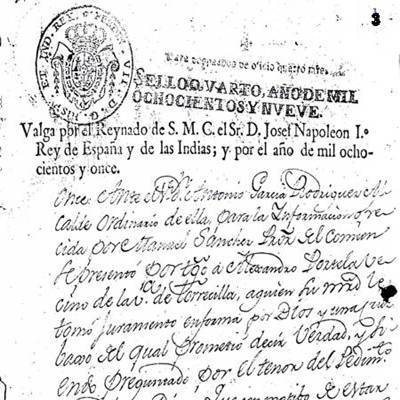 3
HISP. ET IND. REX
Para despachos de oficio quatro mrs.
SELLO QVARTO, AÑO DE MIL
OCHOCIENTOS Y NVEVE.
Valga por el Reynado de S. M. C. el Sr. D. Josef Napoleon I.º
Rey de España y de las Indias; y por el año de mil ocho-
cientos y once.
once Ante Antonio Garcia Rodriguez Al
calde Ordinario de ella, para la Informacion ofre
cida por Manuel Sanchez del Comun
se presento por tgo a Alexandro Portela ve
cino de la v.ª de Torrecilla, a quien su mrd le
tomo juramento en forma por Dios y una
del qual prometio decir Verdad, y
endo preguntado por el tenor del Pedim.to
estar